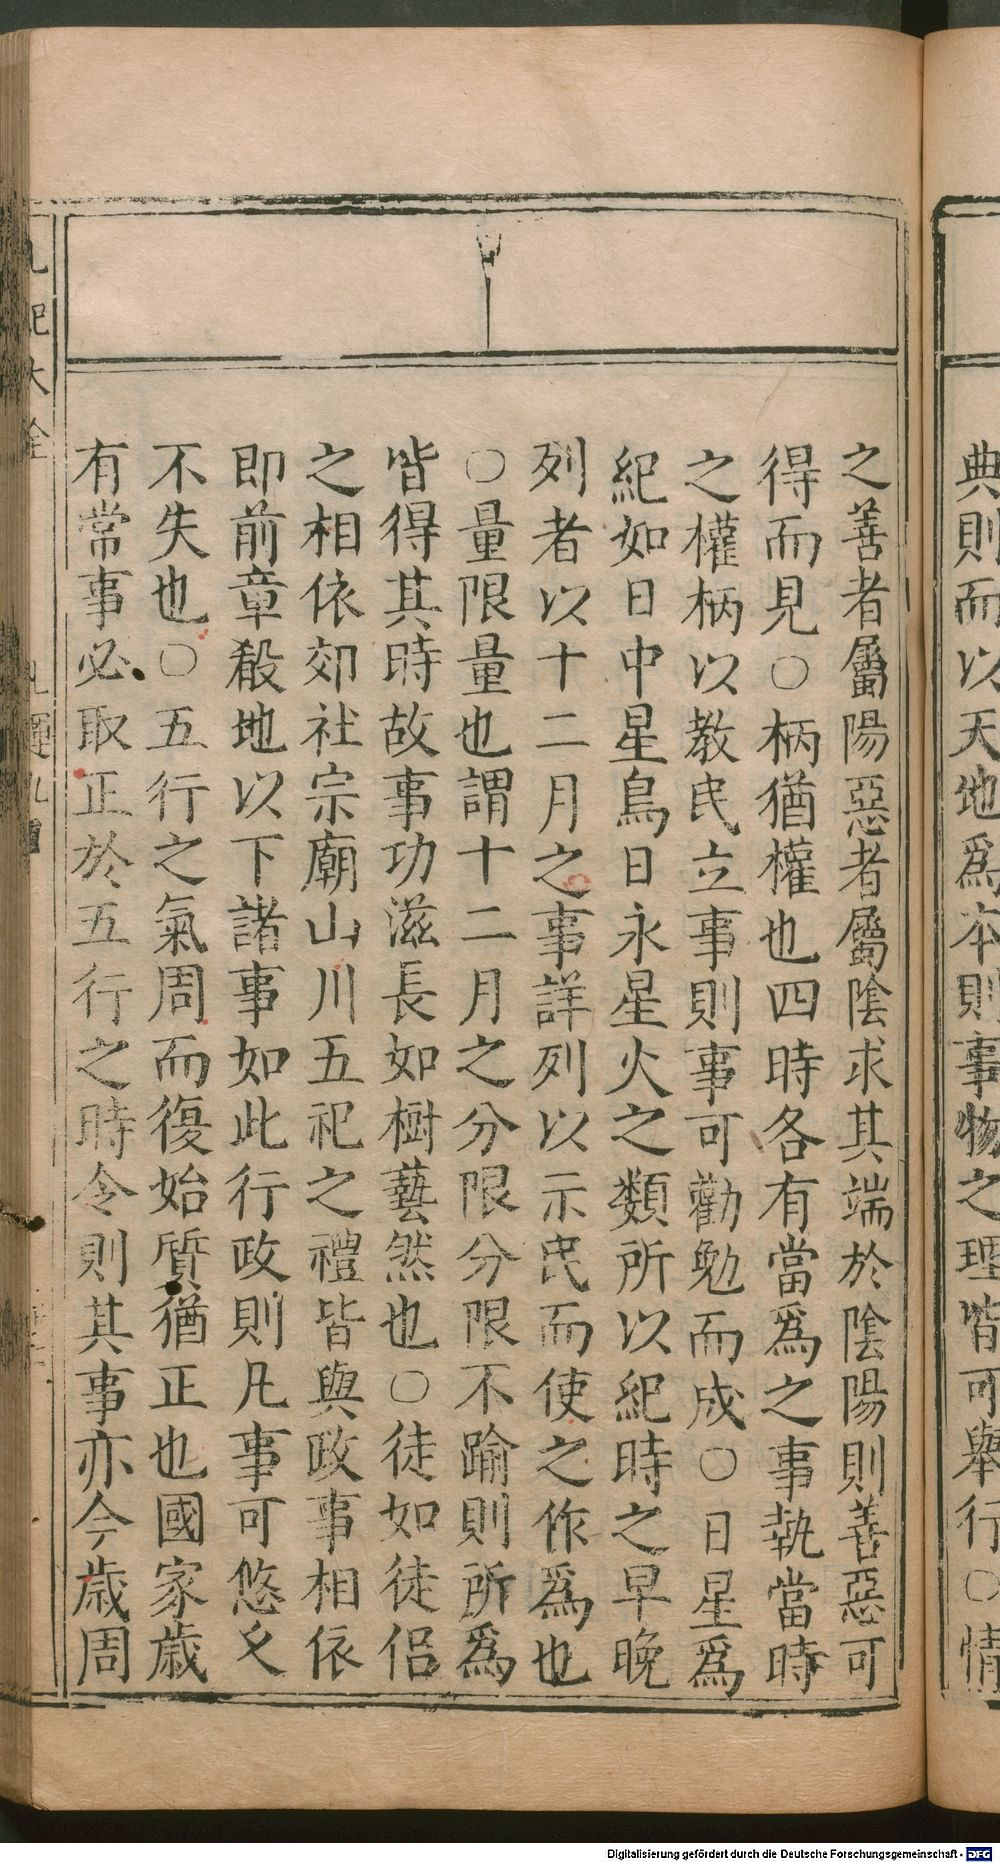 典則而以天地爲本則事物之理皆可舉行○情
之善者屬陽惡者屬陰求其端於陰陽則善惡可
得而見○柄猶權也四時各有當爲之事執當時
之權柄以教民立事則事可勸勉而成○日星爲
紀如日中星鳥日永星火之類所以紀時之早晚
列者以十二月之事詳列以示民而使之作爲也
○量限量也謂十二月之分限分限不踰則所爲
皆得其時故事功滋長如樹藝然也○徒如徒侣
之相依郊社宗廟山川五祀之禮皆與政事相依
即前章殽地以下諸事如此行政則凡事可悠久
不失也○五行之氣周而復始質猶正也國家歲
有常事必取正於五行之時令則其事亦今歲周
Digitalisierung gefördert durch die Deutsche Forschungsgemeinschaft - DFG